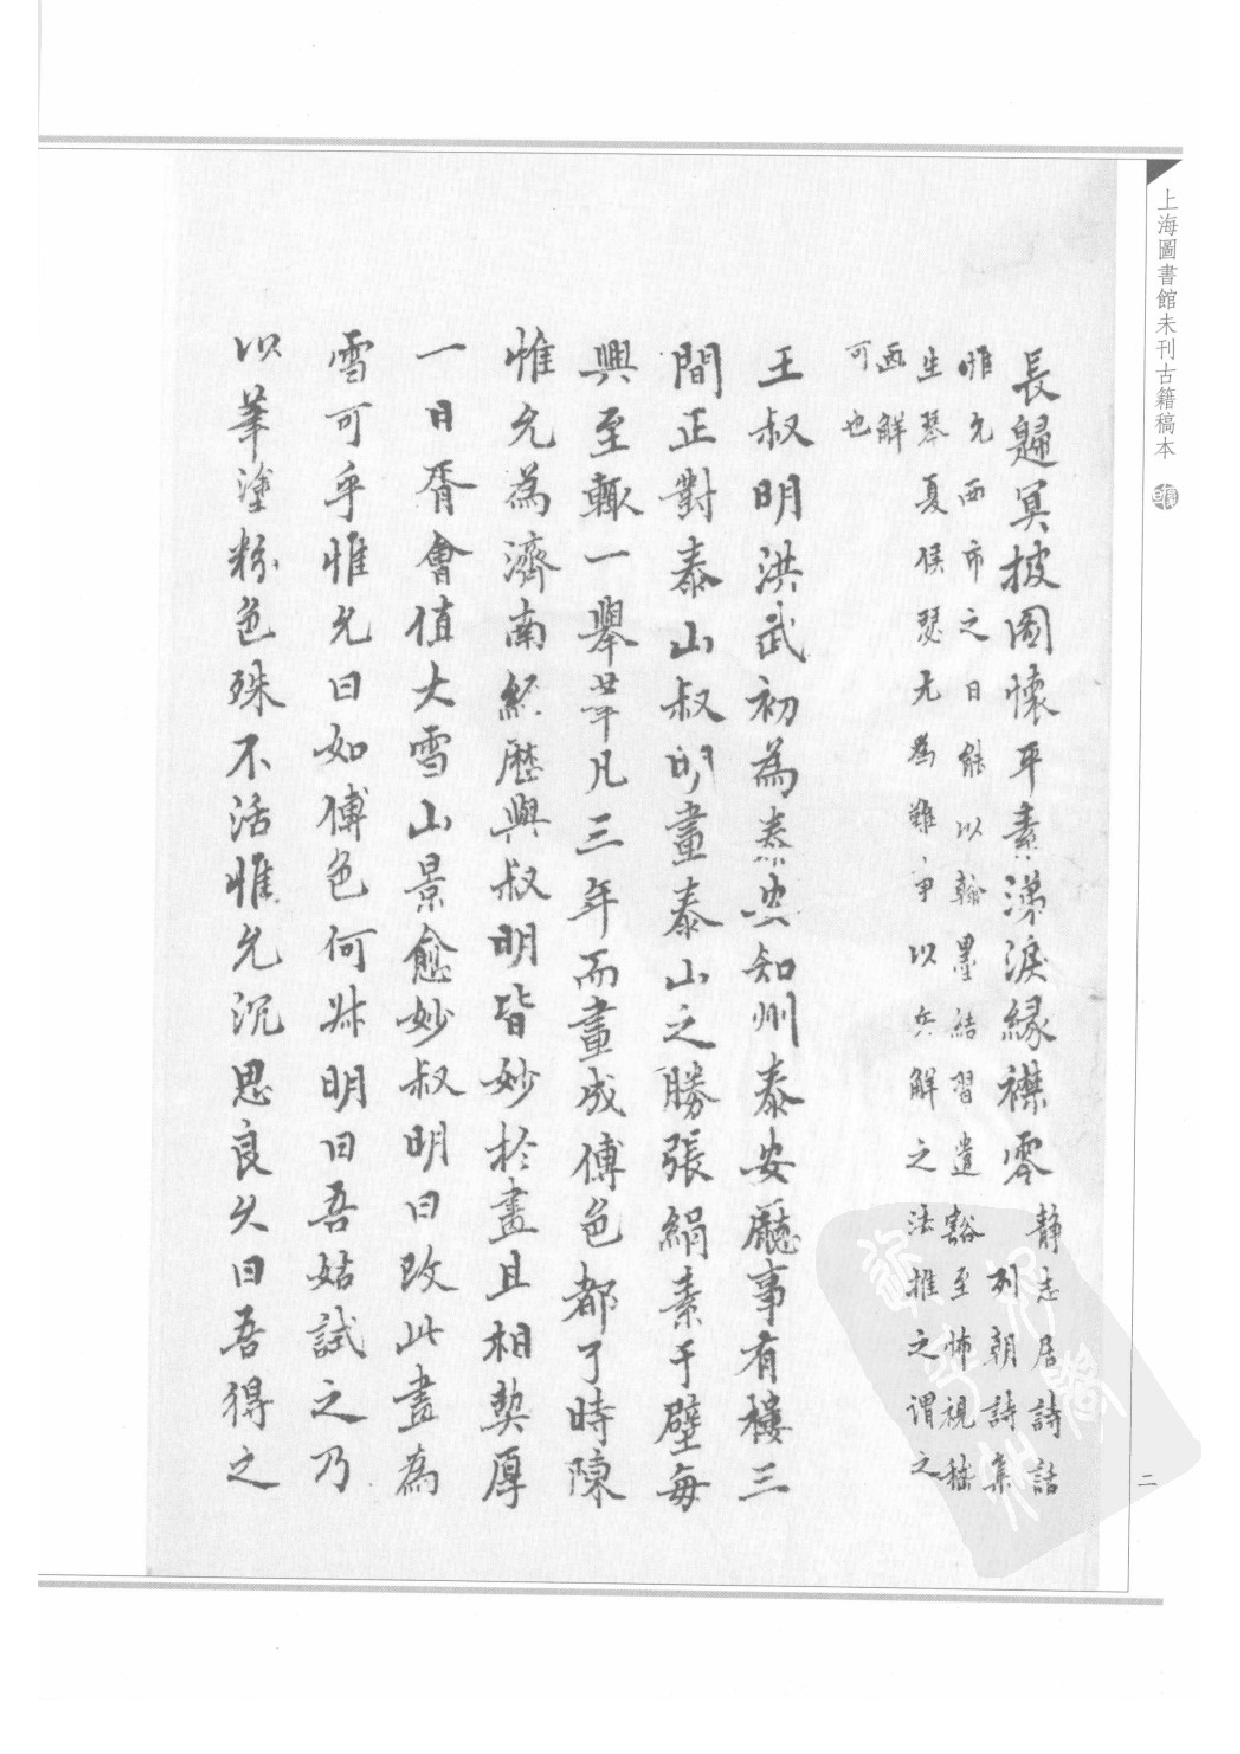 上海圖書館未刊古籍稿本
二
長歸冥披圖懷平素涕淚緣襟零
靜志居詩話
列朝詩集
惟允西市之日能以翰墨結習遣豁至怖視嵇
生琴夏侯瑟尤為難事以兵解之法推之謂之
画解
可也
王叔明洪武初為泰安知州泰安廳事有樓三
間正對泰山叔明畫泰山之勝張絹素于壁每
興至輒一舉筆凡三年而畫成傅色都了時陳
惟允為濟南經歷與叔明皆妙於畫且相契厚
一日胥會值大雪山景愈妙叔明曰改此畫為
雪可乎惟允曰如傅色何叔明曰吾姑試之乃
以筆塗粉色殊不活惟允沉思良久曰吾得之